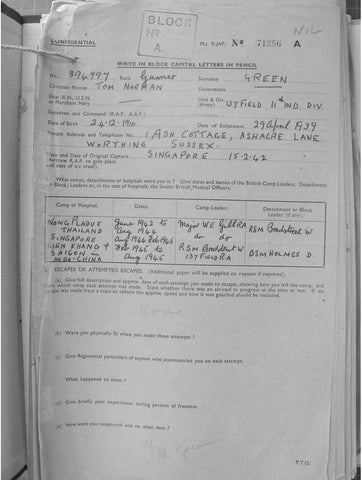 BLOCK
No.
A.
NIL
CONFIDENTIAL
M.I. 9/JAP/ No 71256 A
WRITE IN BLOCK CAPITAL LETTERS IN PENCIL
No. 894997 Rank Gunner Surname GREEN
Christian Names TOM NORMAN Decorations
Ship (R.N., U.S.N. or Merchant Navy) Unit & Div. (Army) 137 FIELD 11th IND. DIV.
Squadron and Command (R.A.F., A.A.F.)
Date of Birth 24.12.1910 Date of Enlistment 29 April 1939
Private Address and Telephone No. 1, ASH COTTAGE, ASHACRE LANE
WORTHING SUSSEX.
Place and Date of Original Capture SINGAPORE 15-2-42
Aircrew R.A.F. to give place and date of a/c crash).
1. What camps, detachments or hospitals were you in? Give dates and names of the British Camp Leaders, Detachment
(or Block) Leaders or, in the case of hospitals, the Senior British Medical Officers.
Camp or Hospital. Dates. Camp Leader. Detachment or Block Leader (if any).
NONG PLADUK THAILAND June 1942 to Aug 1944 Major WE Gill RA RSM Bradstreet W
SINGAPORE Aug 1944 Feb 1945 do do
KIEM KHANG & SAIGON in INDO-CHINA Feb 1945 to Aug 1945 RSM Bradstreet W 137 FIELD RA BSM HOLMES D
2. ESCAPES OR ATTEMPTED ESCAPES. (Additional paper will be supplied on request if required).
(a) Give full description and approx. date of each attempt you made to escape, showing how you left the camp, and from which camp each attempt was made. State whether there was an air-raid in progress at the time or not. If an escape was made from a train or vehicle the approx. speed and how it was guarded should be included.
None
(b) Were you physically fit when you made these attempts?
(c) Give Regimental particulars of anyone who accompanied you on each attempt.
What happened to them?
(d) Give briefly your experiences during periods of freedom.
(e) How were you recaptured and on what date?
T N Green
P.T.O.